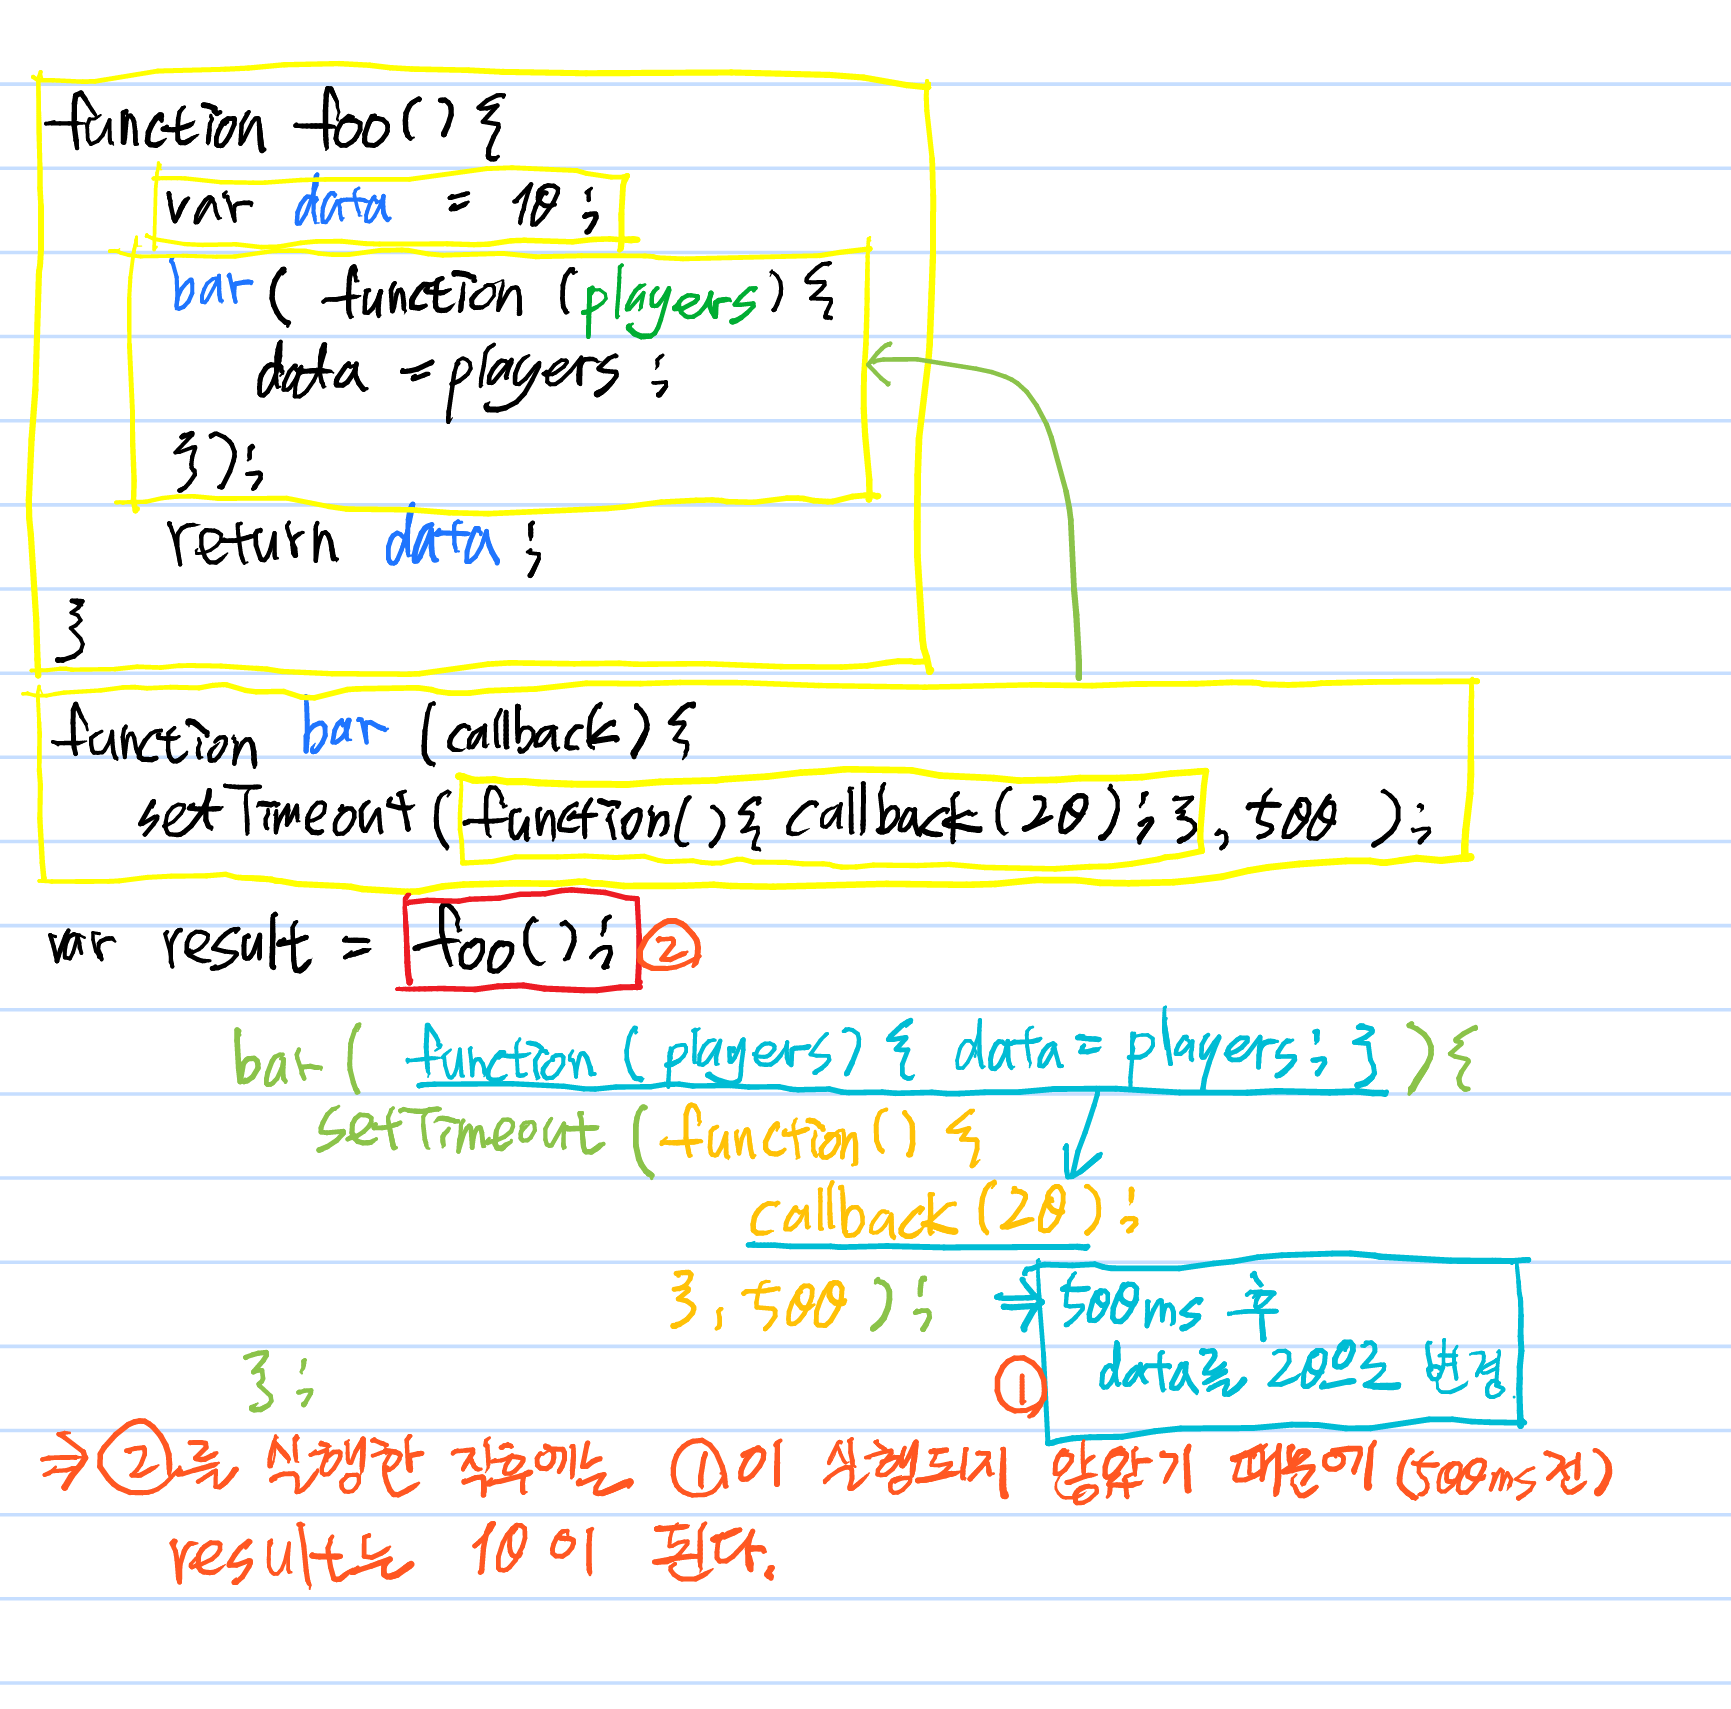 function foo(){
var data = 10;
bar( function (players){
data = players;
});
return data;
}
function bar (callback){
setTimeout(function(){ callback(20); }, 500 );
var result = foo(); ②
bar( function (players) { data = players; } ){
setTimeout (function() {
callback(20);
}, 500 ); ⇒ 500ms 후
}; ① data를 20으로 변경
⇒ ②를 실행한 직후에는 ①이 실행되지 않았기 때문에 (500ms 전)
result는 10이 된다.